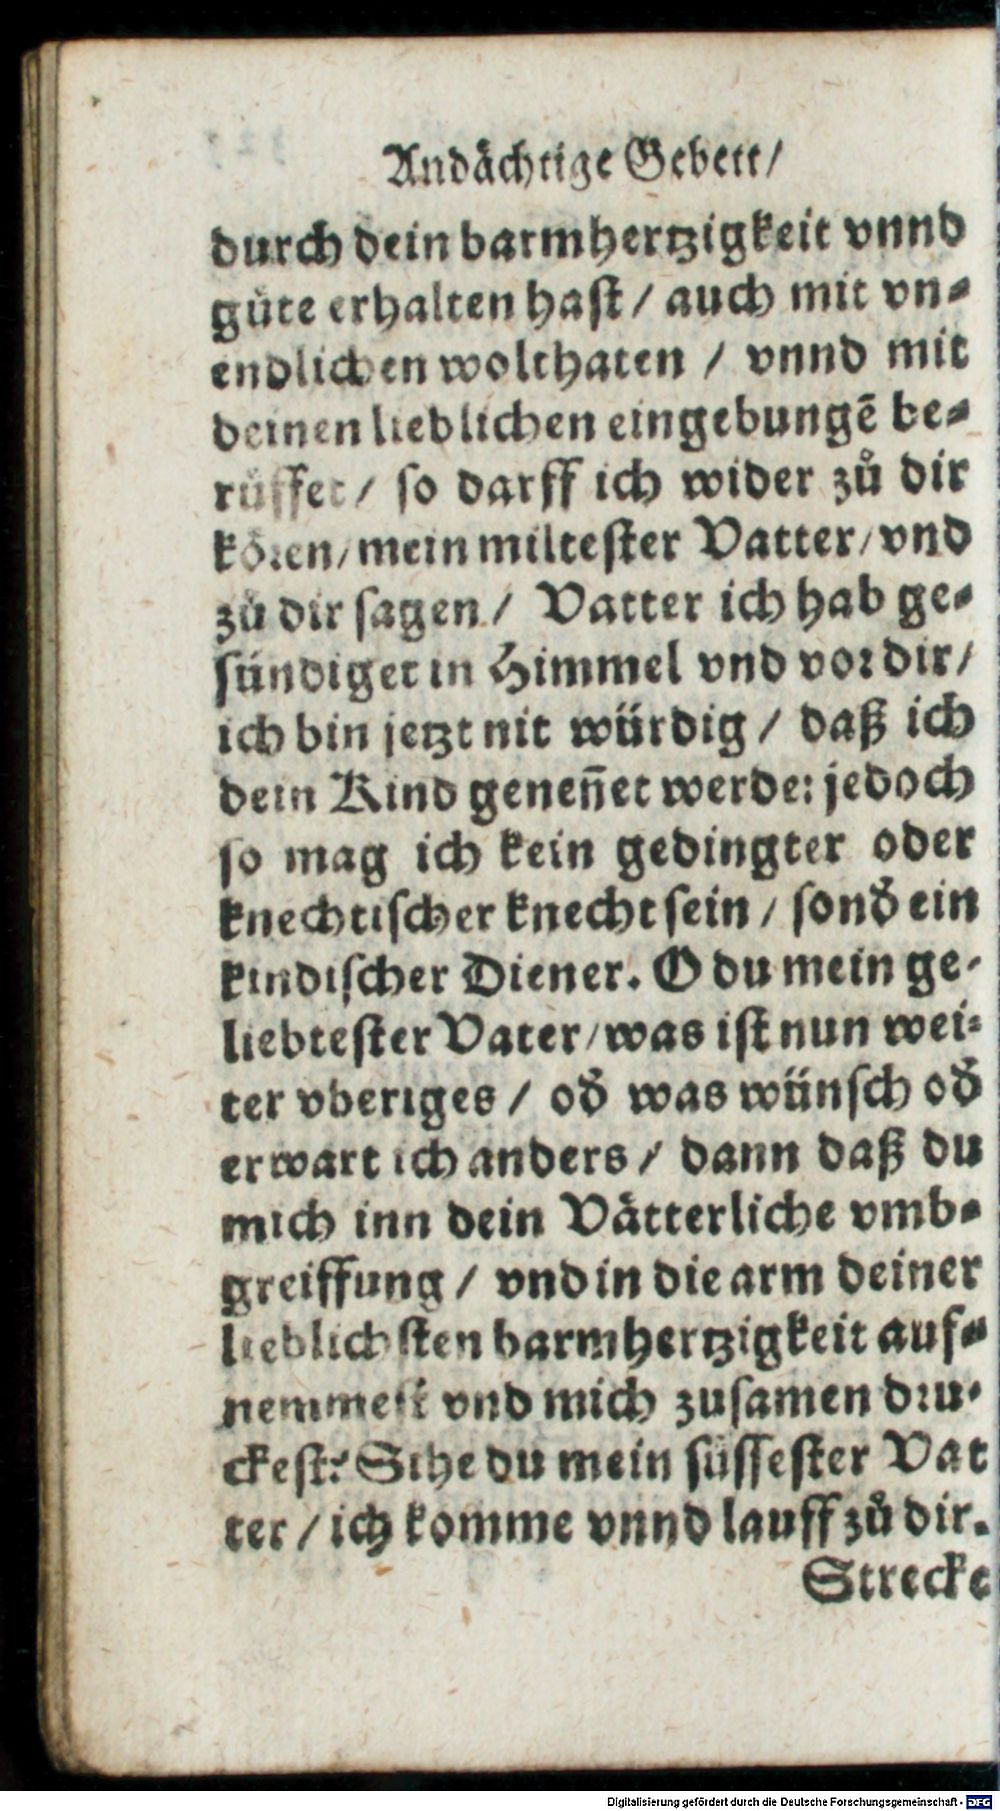 Andåchtige Gebett/
durch dein barmhertzigkeit vnnd
güte erhalten hast / auch mit vn⸗
endlichen wolthaten / vnnd mit
deinen lieblichen eingebungē be⸗
rüffet / so darff ich wider zů dir
kören / mein miltester Vatter / vnd
zů dir sagen / Vatter ich hab ge⸗
sündiget in Himmel vnd vor dir /
ich bin jetzt nit würdig / daß ich
dein Kind geneñet werde: jedoch
so mag ich kein gedingter oder
knechtischer knecht sein / sond̄ ein
kindischer Diener. O du mein ge⸗
liebtester Vater / was ist nun wei⸗
ter vberiges / od̄ was wünsch od̄
erwart ich anders / dann daß du
mich inn dein Våtterliche vmb⸗
greiffung / vnd in die arm deiner
lieblichsten barmhertzigkeit auf⸗
nemmest vnd mich zusamen dru⸗
ckest? Sihe du mein süssester Vat
ter / ich komme vnnd lauff zů dir.
Strecke
Digitalisierung gefördert durch die Deutsche Forschungsgemeinschaft - DFG